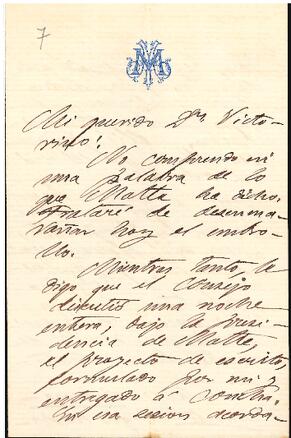 7
Mi querido Dn. Victo-
rino:
No comprendo ni
una palabra de lo
que Matta ha dicho.
Trataré de desenma-
rañar hoy el embro-
llo.
Mientras tanto, le
digo que el Consejo
discutió una noche
entera, bajo la presi-
dencia de Matta,
el proyecto de escrito,
formulado por mi y
entregado á
En esa sesion acorda-